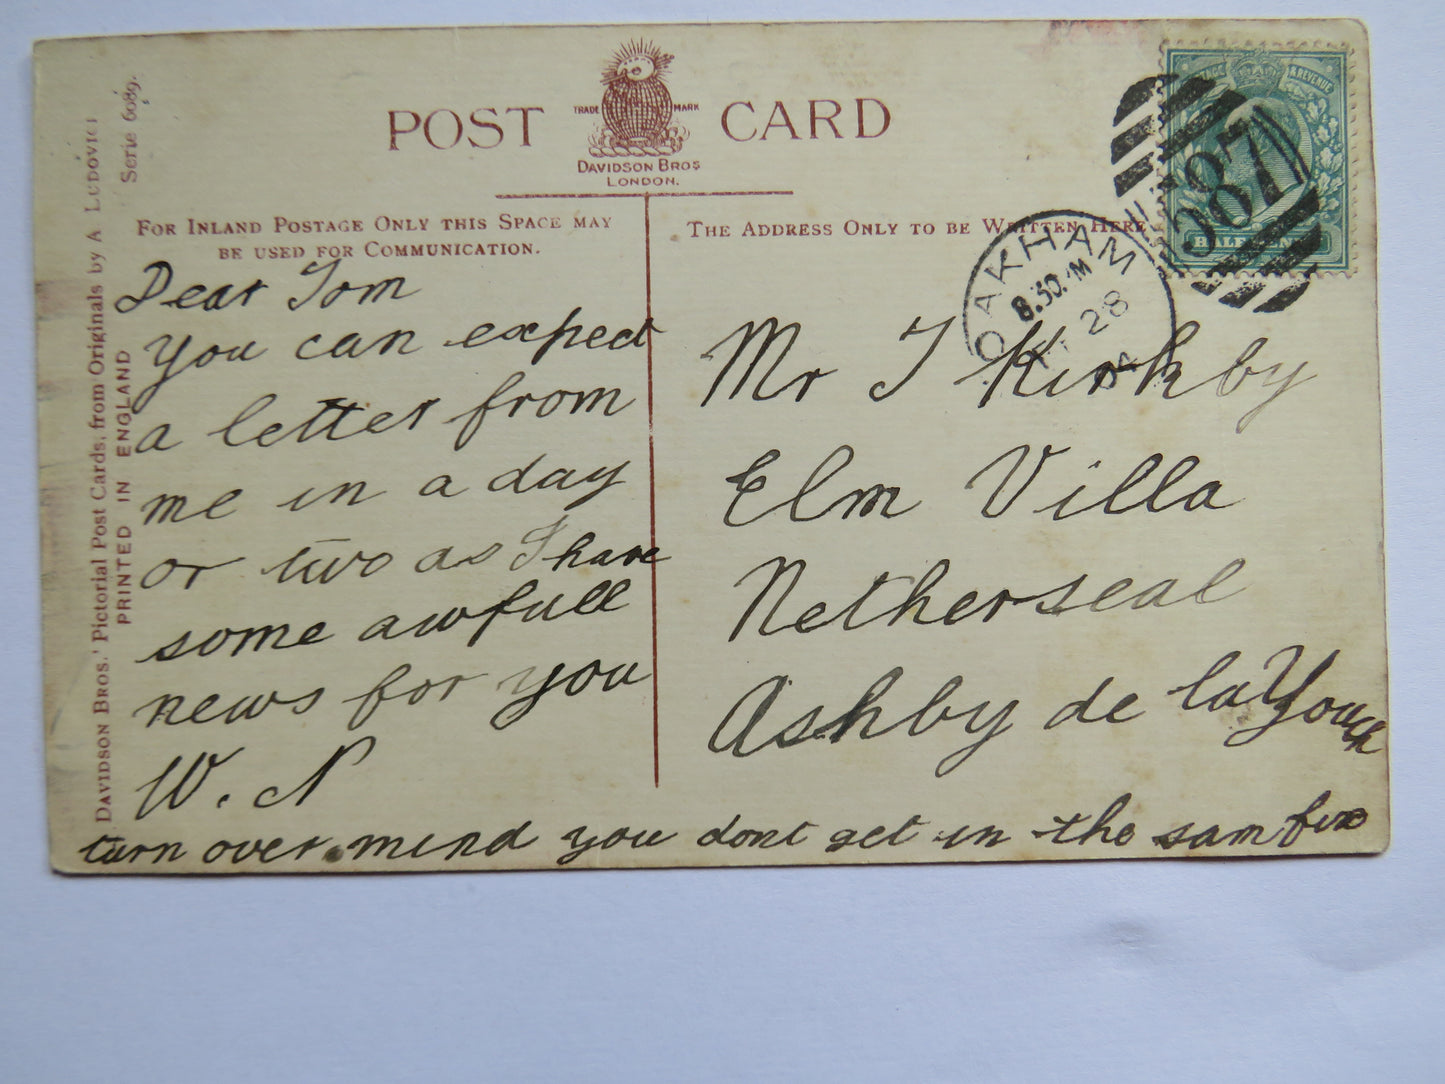 POST CARD
TRADE MARK
DAVIDSON BROS
LONDON.
DAVIDSON BROS.' Pictorial Post Cards, from Originals by A LUDOVICI
Serie 6089.
PRINTED IN ENGLAND
FOR INLAND POSTAGE ONLY THIS SPACE MAY
BE USED FOR COMMUNICATION.
THE ADDRESS ONLY TO BE WRITTEN HERE
& REVENUE
HALF
587
OAKHAM
8.30 PM
28
04
Dear Tom
you can expect
a letter from
me in a day
or two as I have
some awfull
news for you
W. N
turn over mind you dont get in the sam
Mr T Kirkby
Elm Villa
Netherseal
Ashby de la Zouch